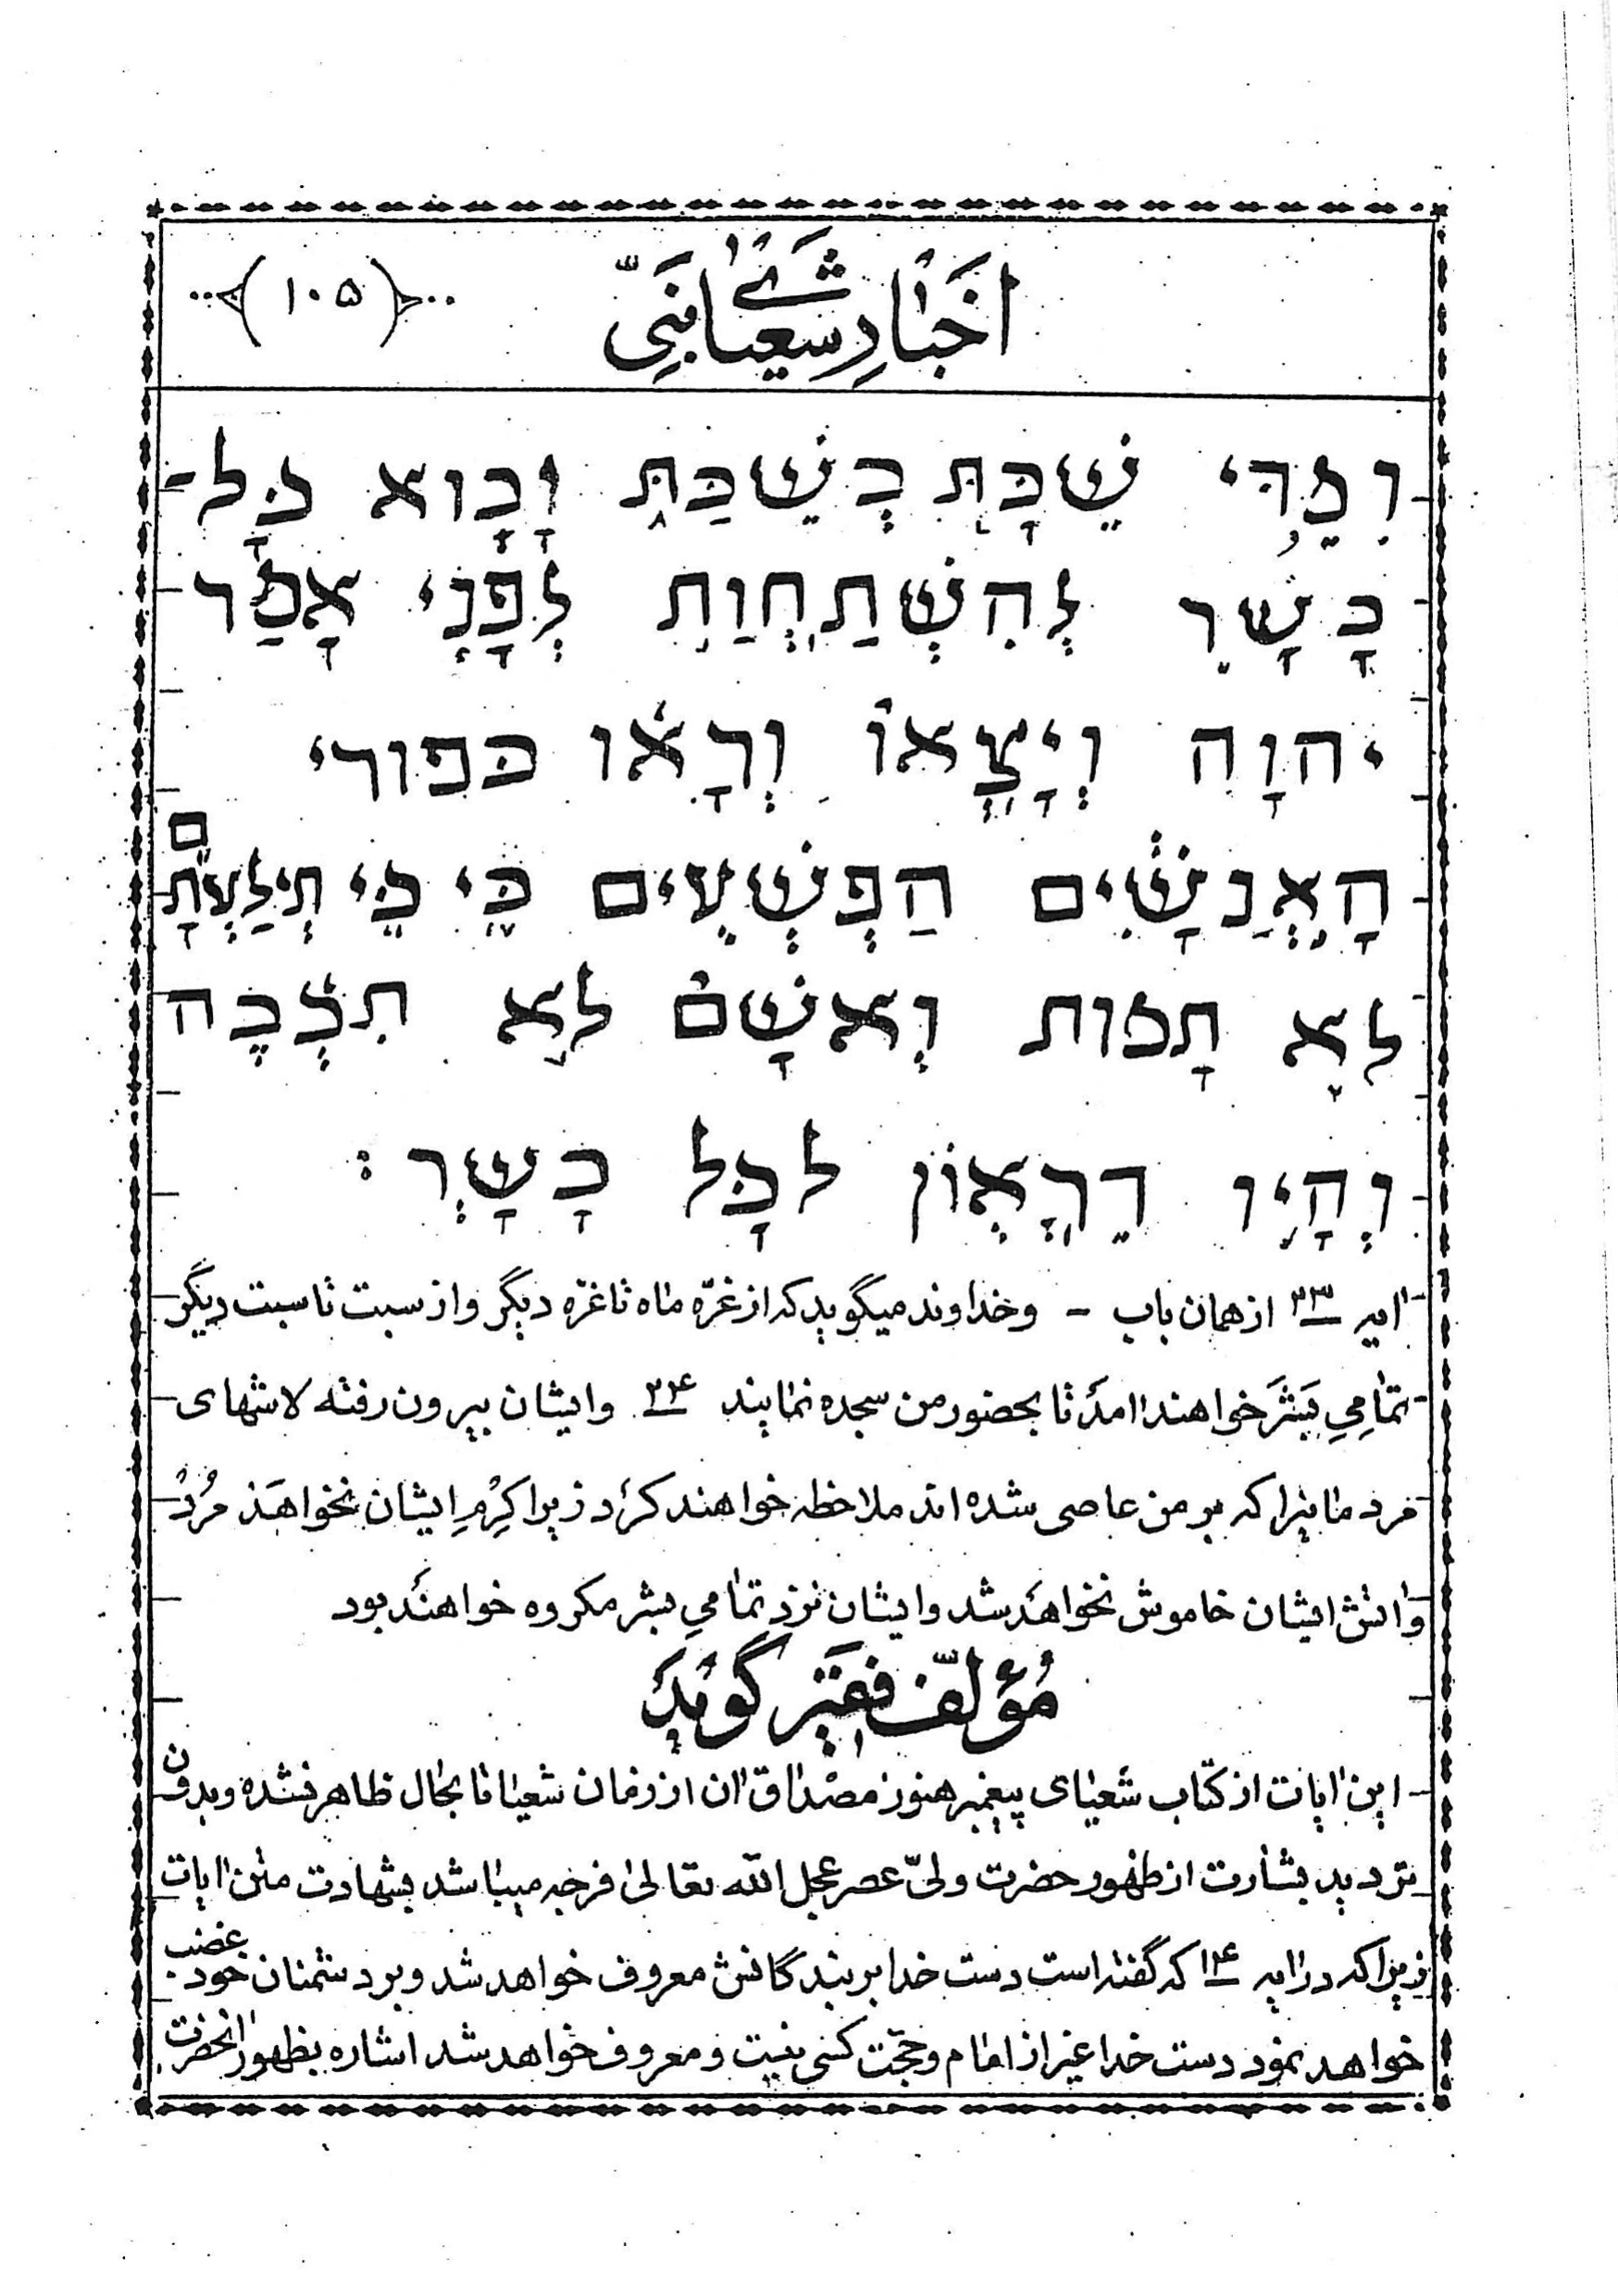 اخبار شعیا نبی
(۱۰۵)
וּמִדֵּי שַׁבָּת בְּשַׁבַּתּ וָבוֹא כָל־
בָּשָׂר לְהִשְׁתַּחֲוֹת לְפָנַי אָמַר
יהוָה וְיָצְאוּ וְרָאוּ בפורי
הָאֲנָשִׁים הַפְּשְׁעִים בִּי כִּי תִילַעְתָּם
לֹא תָמוּת וְאשָׁם לֹא תִכְבֶּה
וְהָיוּ דֵרָאוֹן לכָל בָּשָׂר :
ایه ۲۳ از همان باب - و خداوند میگوید که از غرّه ماه تا غرّه دیگر و از سبت تا سبت دیگر
تمامِیِ بَشَر خواهند امد تا بحضور من سجده نمایند ۲۴ و ایشان بیرون رفته لاشهای
مردمانیرا که بر من عاصی شده اند ملاحظه خواهند کرد زیرا کِرْمِ ایشان نخواهَد مُرْدْ
و اتش ایشان خاموش نخواهد شد و ایشان نزد تمامیِ بشر مکروه خواهند بود
مُؤلّف فقیر گوید
این ایات از کتاب شعیای پیغمبر هنوز مصداق ان از زمان شعیا تا بحال ظاهر نشده و بدون
تردید بشارت از ظهور حضرت ولیّ عصر عجل الله تعالی فرجه میباشد بشهادت متن ایات
زیرا که در ایه ۱۴ که گفته است دست خدا بر بندگانش معروف خواهد شد و بر دشمنان خود غضب
خواهد نمود دست خدا غیر از امام و حجّت کسی نیست و معروف خواهد شد اشاره بظهور انحضرت